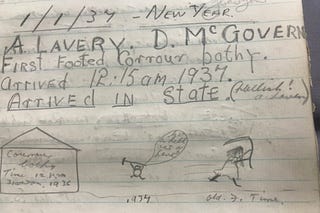 1/1/37 - NEW YEAR.
A. LAVERY. D. McGOVERN
FIRST FOOTED Corrour bothy.
ARRIVED 12.15 am 1937.
ARRIVED IN STATE.
Corrour
bothy
Time
1936
1937
old. F. Time.